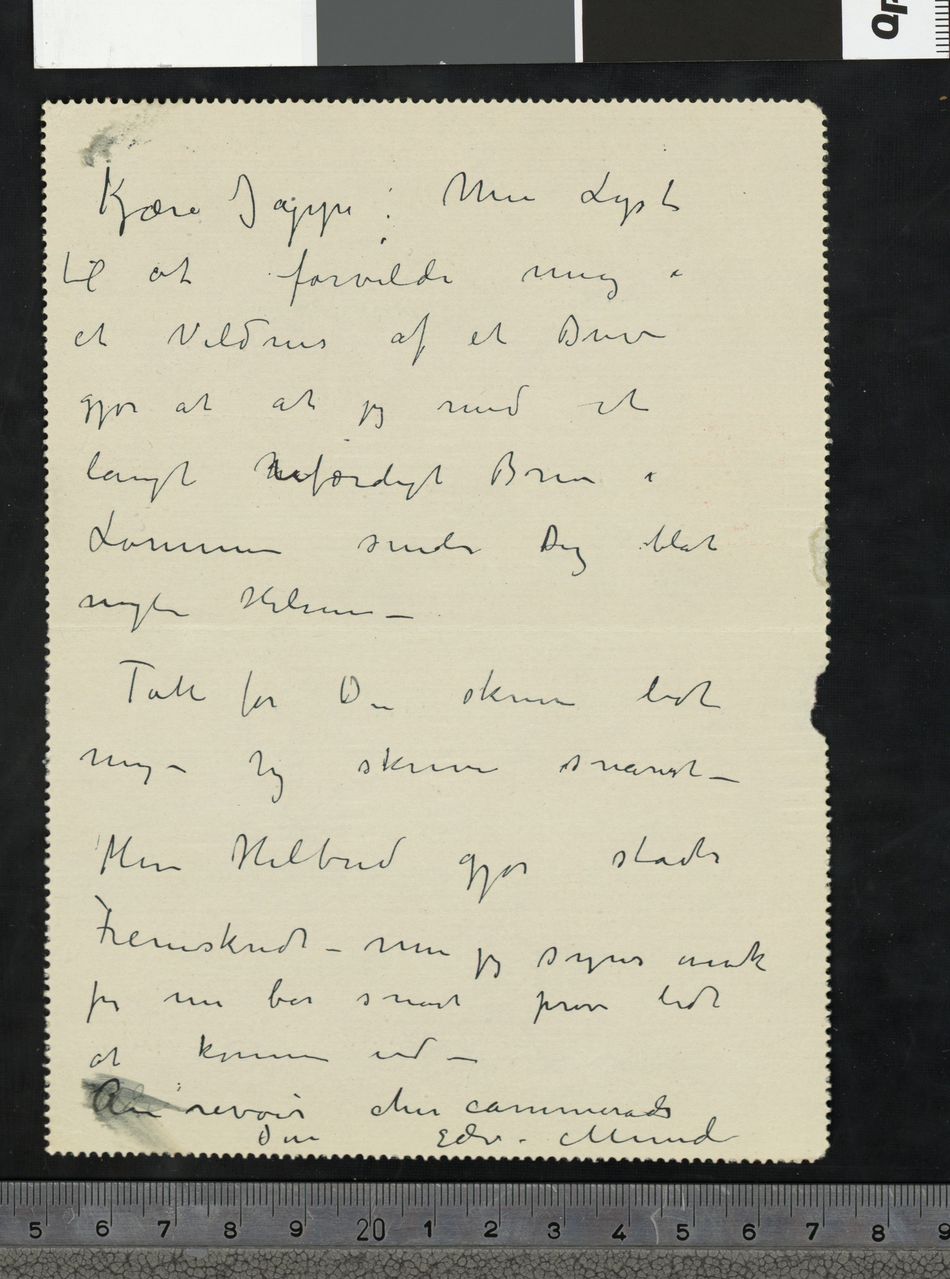 Kjære Jappe! Min Lyst
til at forvilde mig i
et Vildnis af et Brev
gjør at at jeg med et
langt halvfærdigt Brev i
Lommen sender Dig blot
nogle Hilsener –
Takk for Du skriver lidt
mig – Jeg skriver snarest –
Min Helbred gjør stadig
Fremskridt – men jeg synes
jeg nu bør snart prøve lidt
at komme ud –
Au revoir cher cammerade
Din Edv. Munch
5 6 7 8 9 20 1 2 3 4 5 6 7 8 9